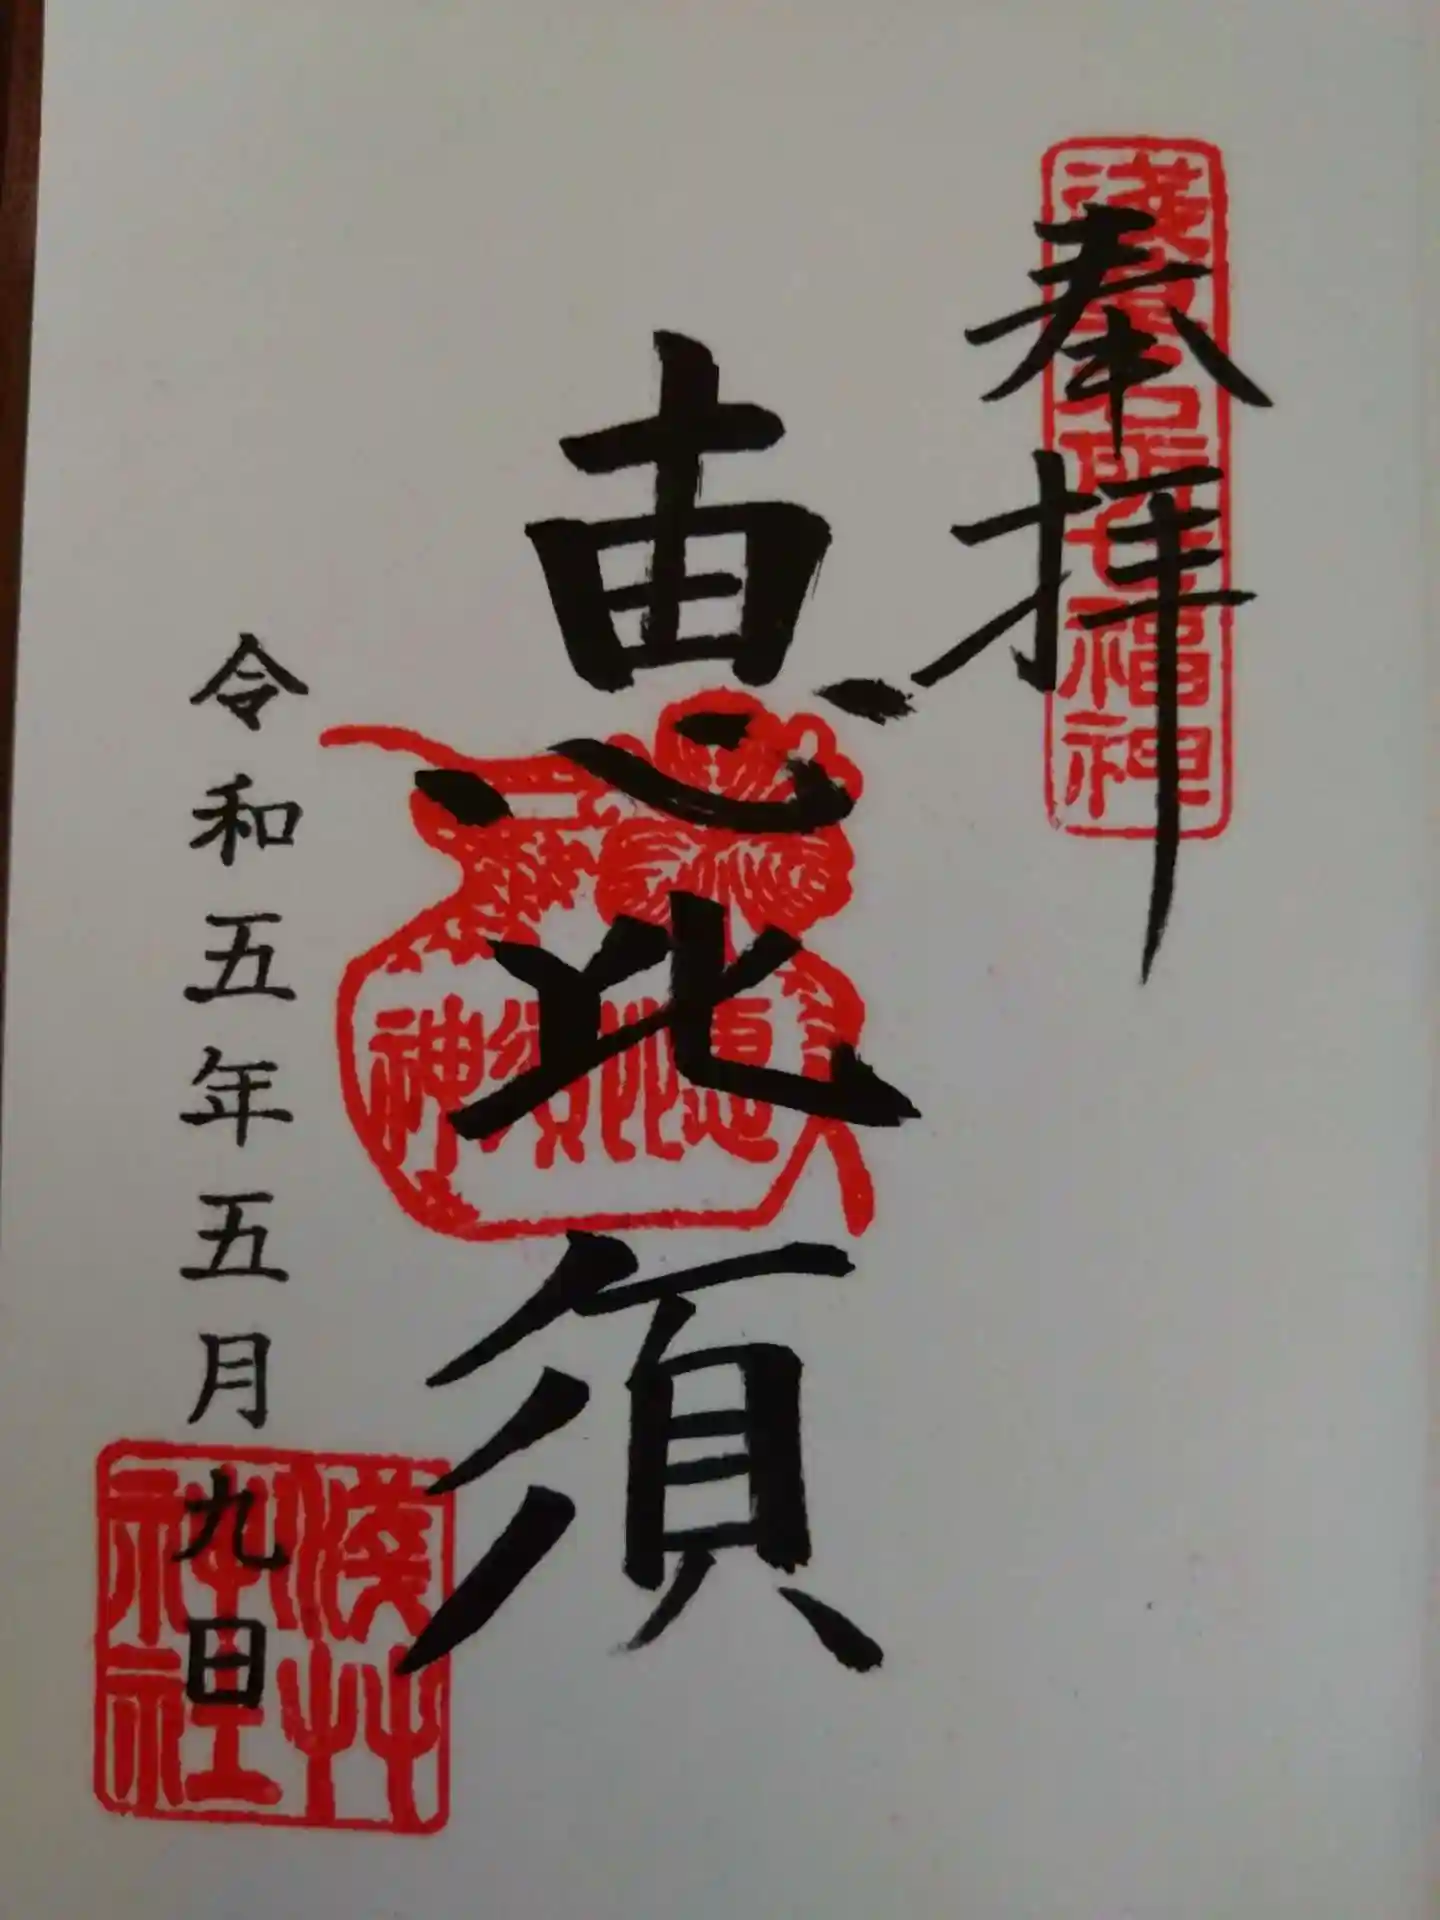 淺草名所七福神
奉拝
恵比須
恵比須神
令和五年五月九日
淺草神社